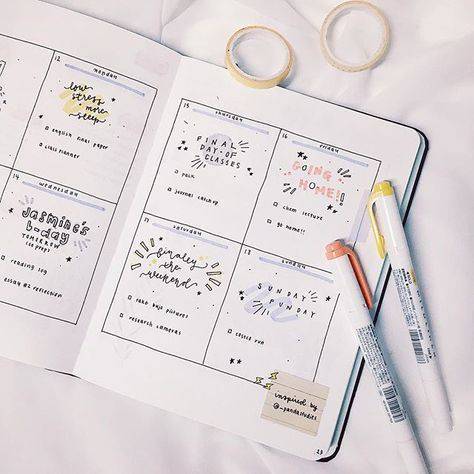 12
monday
low
stress
more
sleep
english finals paper
class planner
14
wednesday
JASMINE'S
B-DAY
TOMORROW
reading log
essay #2 reflection
15
thursday
FINAL
DAY·OF
CLASSES
pack
journal catch up
16
friday
GOING
HOME!!
chem lecture
go home!!
17
saturday
finaley
the
weekend
take bujo pictures
research cameras
18
sunday
SUNDAY
FUNDAY
costco run
inspired by
23